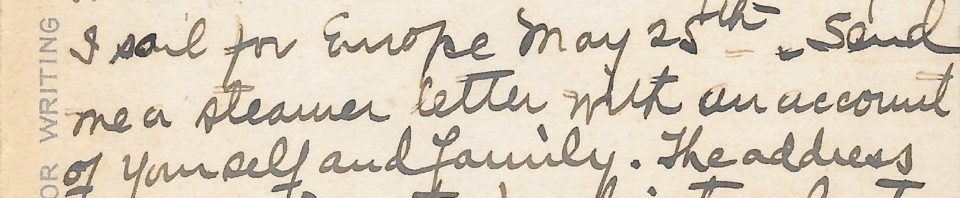 I sail for Europe May 25th. Send
me a steamer letter with an account
of yourself and family. The address
OR WRITING